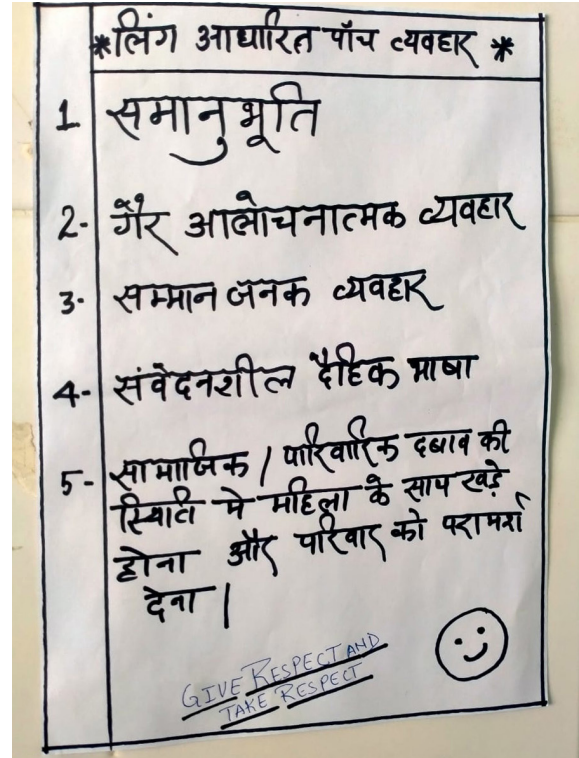 *लिंग आधारित पाँच व्यवहार *
1 समानुभूति
2- गैर आलोचनात्मक व्यवहार
3- सम्मान जनक व्यवहार
4- संवेदनशील दैहिक भाषा
5- सामाजिक / पारिवारिक दबाव की
स्थिति मे महिला के साथ खड़े
होना और परिवार को परामर्श
देना |
GIVE RESPECT AND
TAKE RESPECT